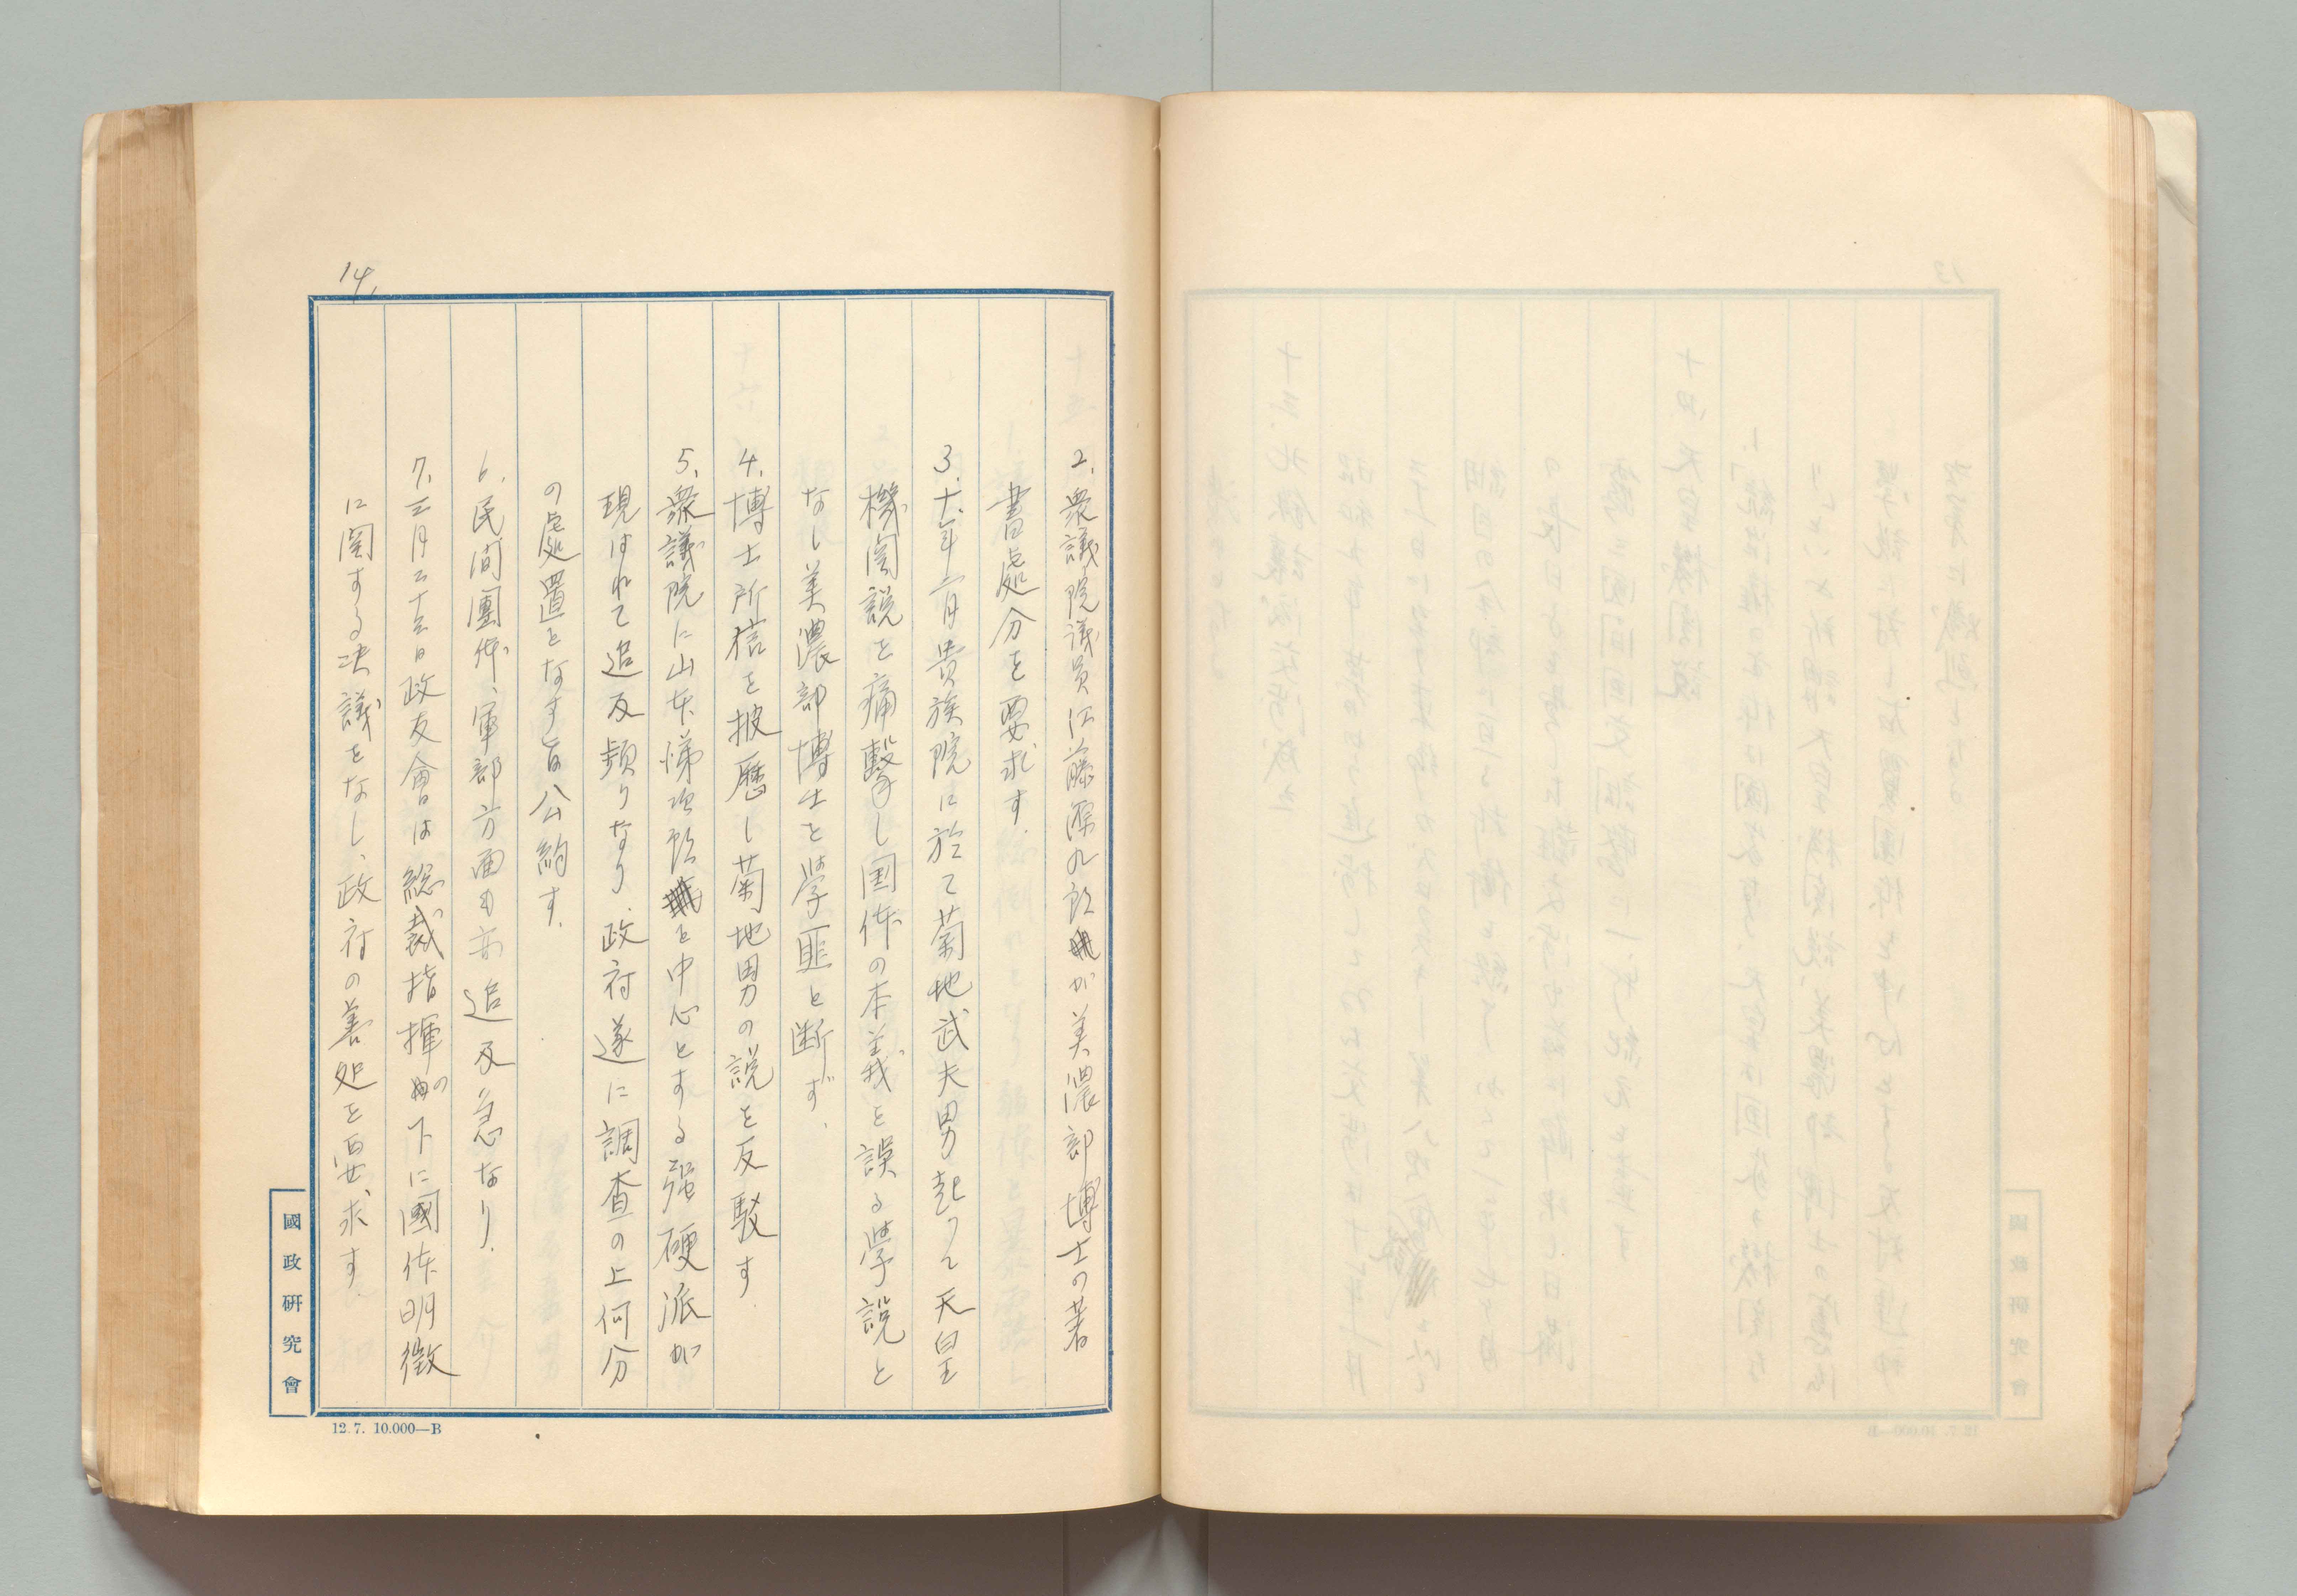 14.
2. 衆議院議員江藤源九郎が美濃部博士の著
書處分を要求す.
3. 十年二月貴族院に於て菊地武夫男起つて天皇
機関説を痛撃し国体の本義を誤る學説と
なし美濃部博士を學匪と断ず.
4. 博士所信を披歴し菊地男の説を反駁す.
5. 衆議院に山本悌次郎を中心とする强硬派が
現はれて追及頻りなり. 政府遂に調査の上何分
の處置となす旨公約す.
6. 民間團体、軍部方面も亦追及急なり.
7. 三月二十三日政友會は総裁指揮の下に國体明徴
に関する决議をなし、政府の善処を要求す.
國政研究會
12.7. 10.000—B